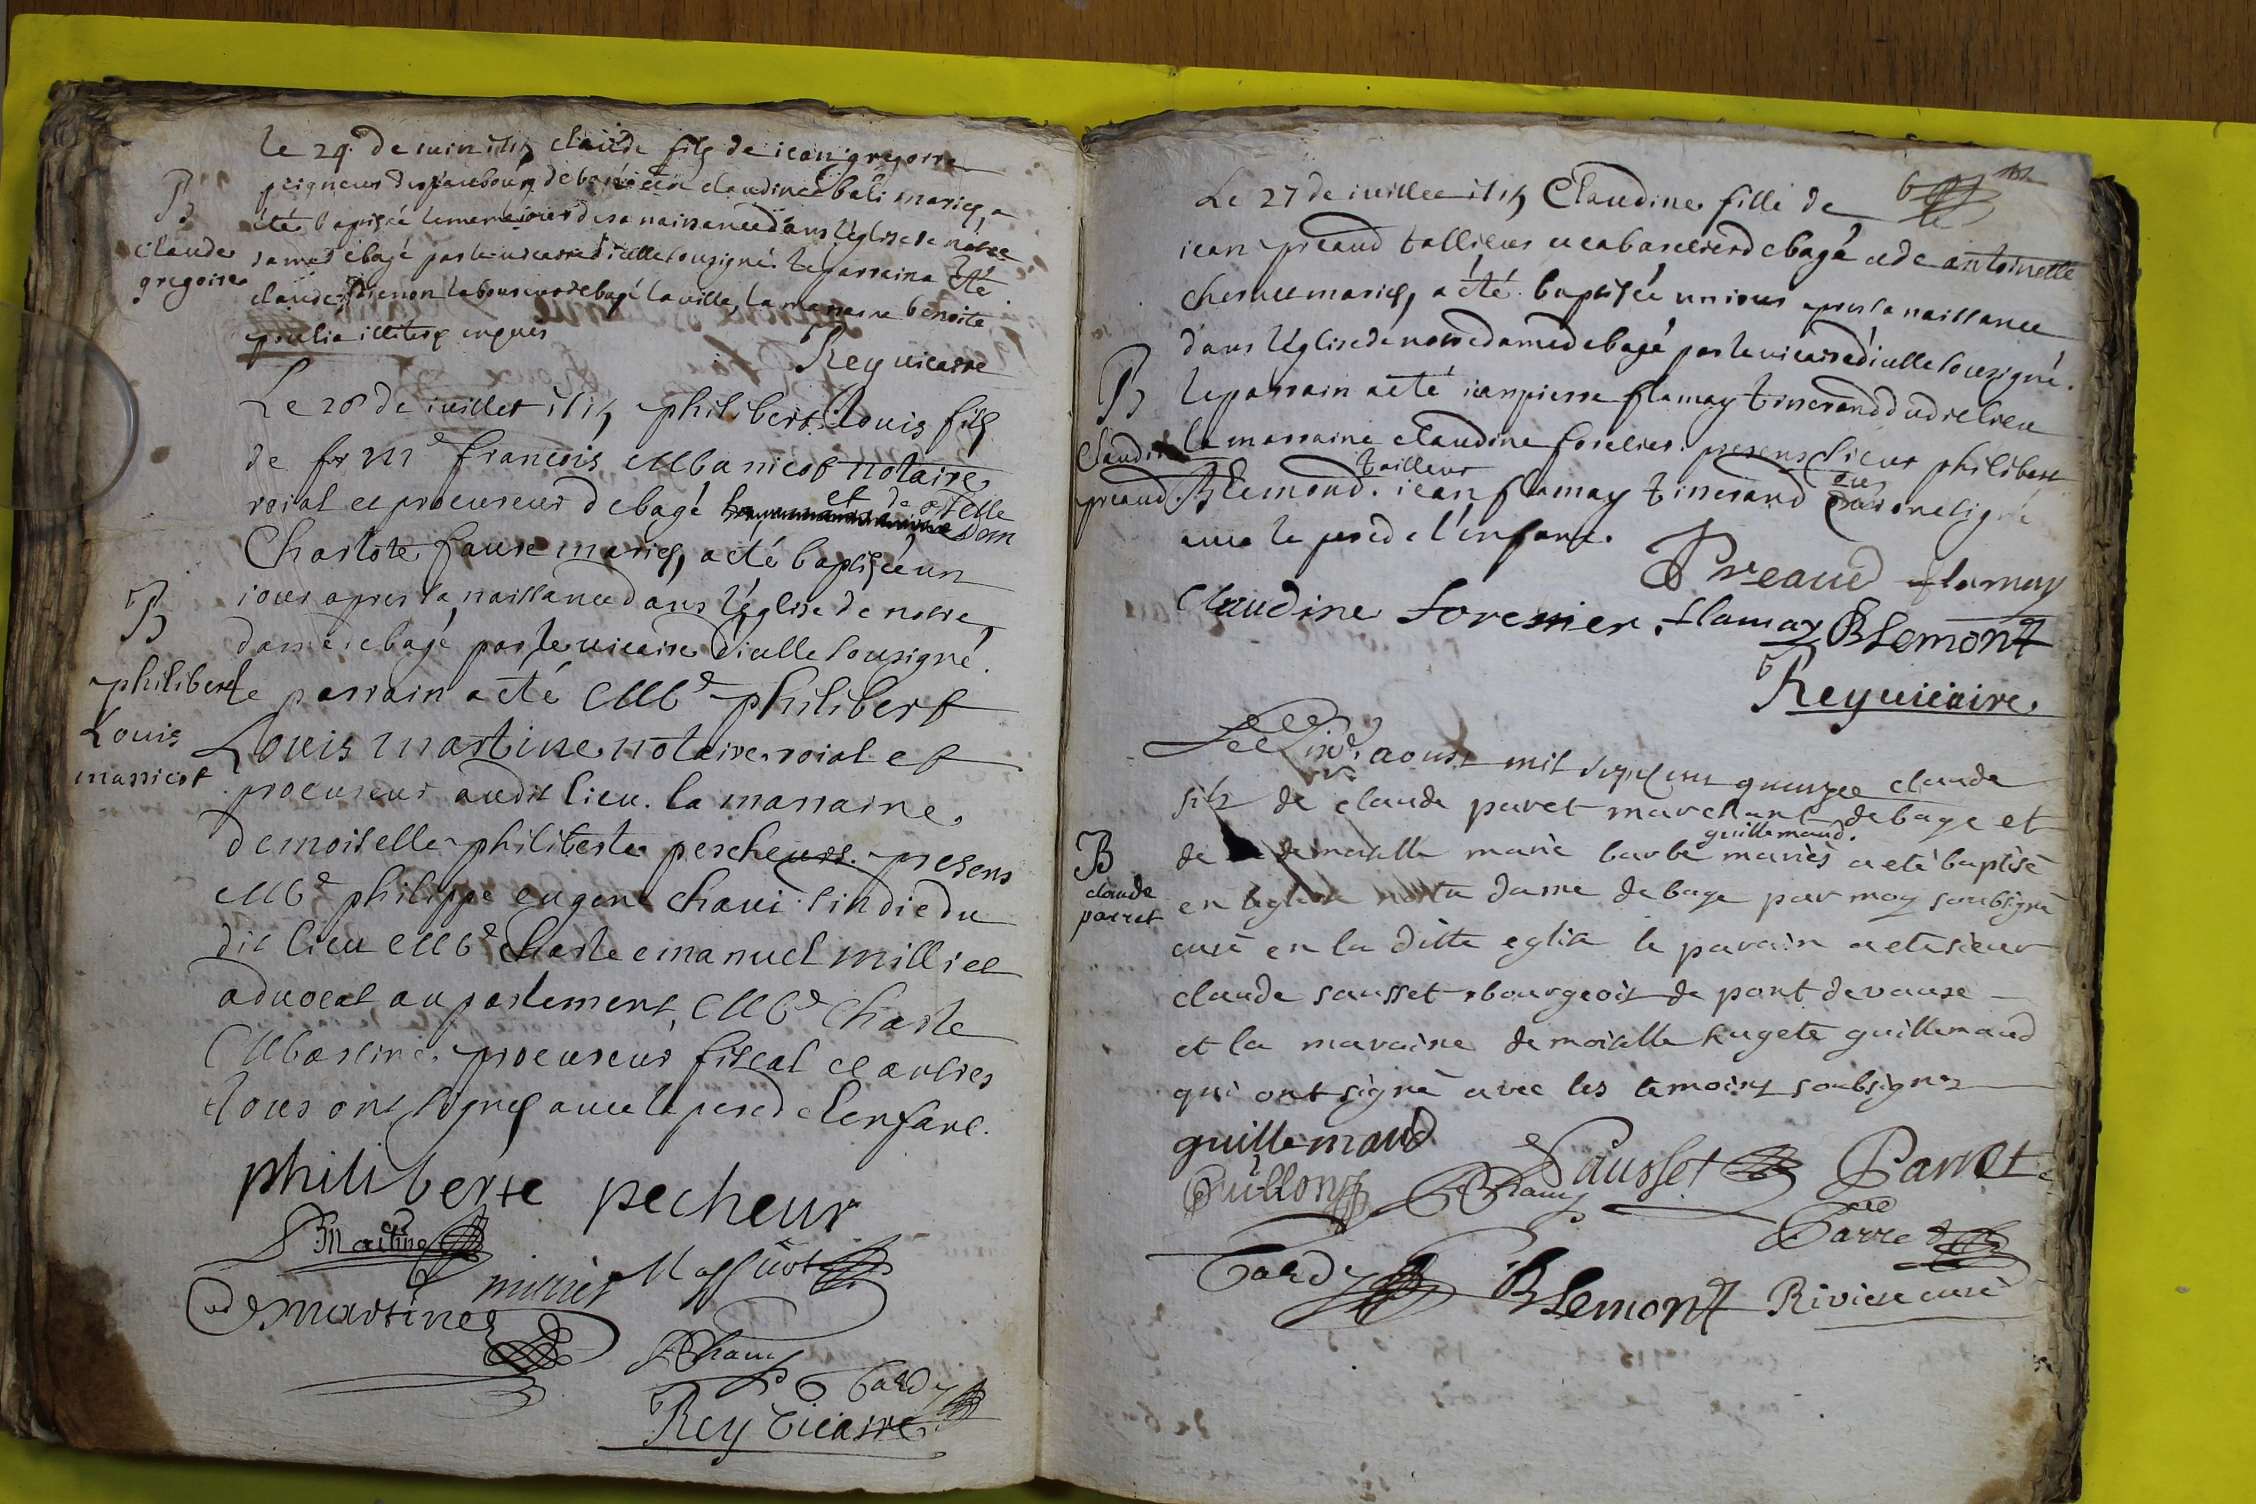 le 29 de iuin 1715 claude fils de iean gregoire
peigneur du faubourg de et de claudine bali mariés, a
été baptisé le meme iour de sa naissance dans l'église de notre
dame de bagé par le vicaire d'icelle souzigné. le parrain a été
claude laboureur de bagé la ville, la marraine benoite
illiterés enquis
Rey vicaire
B
claude
gregoire
Le 28 de iuillet 1715 philibert Louis fils
de sr Me françois Massicot notaire
roial et procureur de bagé et de delle
Charlote faure mariés, a été baptisé un
iour apres sa naissance dans l'église de notre
dame de bagé par le vicaire d'icelle souzigné.
le parrain a été Me philibert
Louis martine notaire roial et
procureur audit lieu. la marraine
demoiselle philiberte pescheurs. presens
Me philippe eugene Chavi sindic du
dit lieu Me Charle emanuel milliet
advocat au parlement, Me Charle
Martine procureur fiscal et autres
tous ont signés avec le pere de lenfant.
B
philibert
Louis
massicot
philiberte pecheur
Martine
milliet Massicot
martine
Chavy
Tardy
Rey vicaire
Le 27 de iuillet 1715 Claudine fille de
iean preaud tallieur et cabaretier de bagé et de antoinette
mariés, a été baptisée un iour apres sa naissance
dans l'église de notre dame de bagé par le vicaire d'icelle souzigné.
le parrain a été iean pierre flamay tisserand dudit lieu
la marraine claudine forestier. presens sieur philibert
Blemond. tailleur iean flamay tisserand qui ont signé
avec le pere de l'enfant.
B
Claudine
preaud
Preaud flamay
Claudine forestier, flamay Blemont
Rey vicaire
Le aoust mil sept cent quinze claude
fils de claude paret marchant de bage et
de demoiselle marie barbe guillemaud. mariès a eté baptisè
en leglise notre dame de bage par moy soubsigné
curé en la ditte eglise le parain a eté sieur
claude sausset bourgeois de pont devause
et la maraine demoiselle hugete guillemaud
qui ont signé avec les temoins soubsignez
B
claude
parret
guillemaud
Guillon Chavy Sausset Parret
Parret
Tardy Blemont Riviere curé